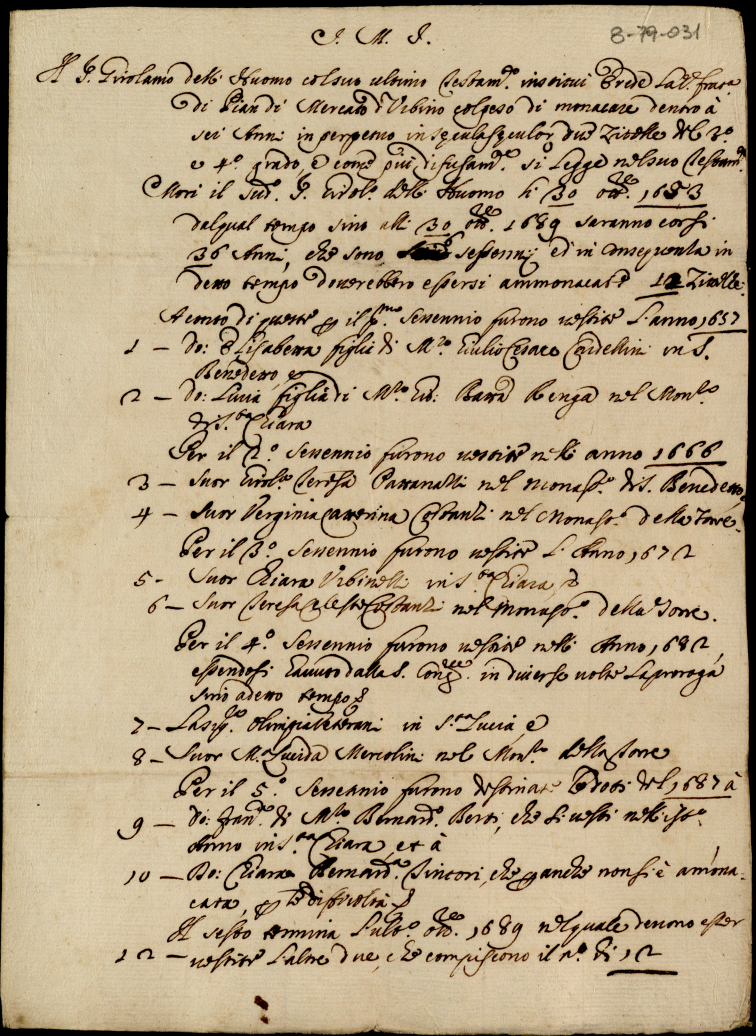 8-79-031
J. M. J.
Il S. Girolamo delli Huomo col suo ultimo Testam.to instituì Erede la V. frat.a
di Pian di Mercato d'Urbino col peso di monacare dentro à
sei Anni in perpetuo in secula seculor. due Zitelle del 3.o
e 4.o grado, e come più difusam.te si legge nel suo Testam.to
Morì il sud.o S. Girol.o delli Huomo li 30 ott.re 1653
dal qual tempo sino alli 30 ott.re 1689 saranno corsi
36 Anni, che sono sessenni ed in consequenza in
detto tempo doverebbero essersi ammonacate 12 Zitelle.
A conto di queste p il p.mo Sessennio furono vestite l'anno 1657
1 - Do: Elisabetta figlia di M.ro Giulio Cesare Cordellini in S.
Benedetto, e
2 - Do: Lucia figlia di M.ro Gio: Batta Benga nel Mon.ro
di S.ta Chiara
Per il 2.o Sessennio furono vestite nell'anno 1666
3 - Suor Girol.a Teresa nel Monast.o di S. Benedetto
4 - Suor Verginia Catterina Costanzi nel Monast.o della Torre.
Per il 3.o Sessennio furono vestite l'Anno 1672
5 - Suor Chiara Urbinelli in S.ta Chiara, e
6 - Suor Teresa Celeste Costanzi nel Monast.o della Torre.
Per il 4.o Sessennio furono vestite nell'Anno 1682,
essendosi havuto dalla S. Cong.ne in diverse volte la proroga
sino a detto tempo
7 - La Sig.ra Olimpia Veterani in S.ta Lucia, e
8 - Suor M.a Lucida Merolini nel Mon.ro della Torre
Per il 5.o Sessennio furono destinate le doti del 1687 à
9 - Do: Fran.ca di M.ro Bernard.o Berti, che si vestì nell'ist.o
Anno in S.ta Chiara, et à
10 - Do: Chiara Bernard.a Tintori, che p anche non si è amona-
cata, p difficoltà
Il sesto termina l'ult.o ott.re 1689 nel quale devono esser
12 - vestite l'altre due, che compiscono il n.o di 12